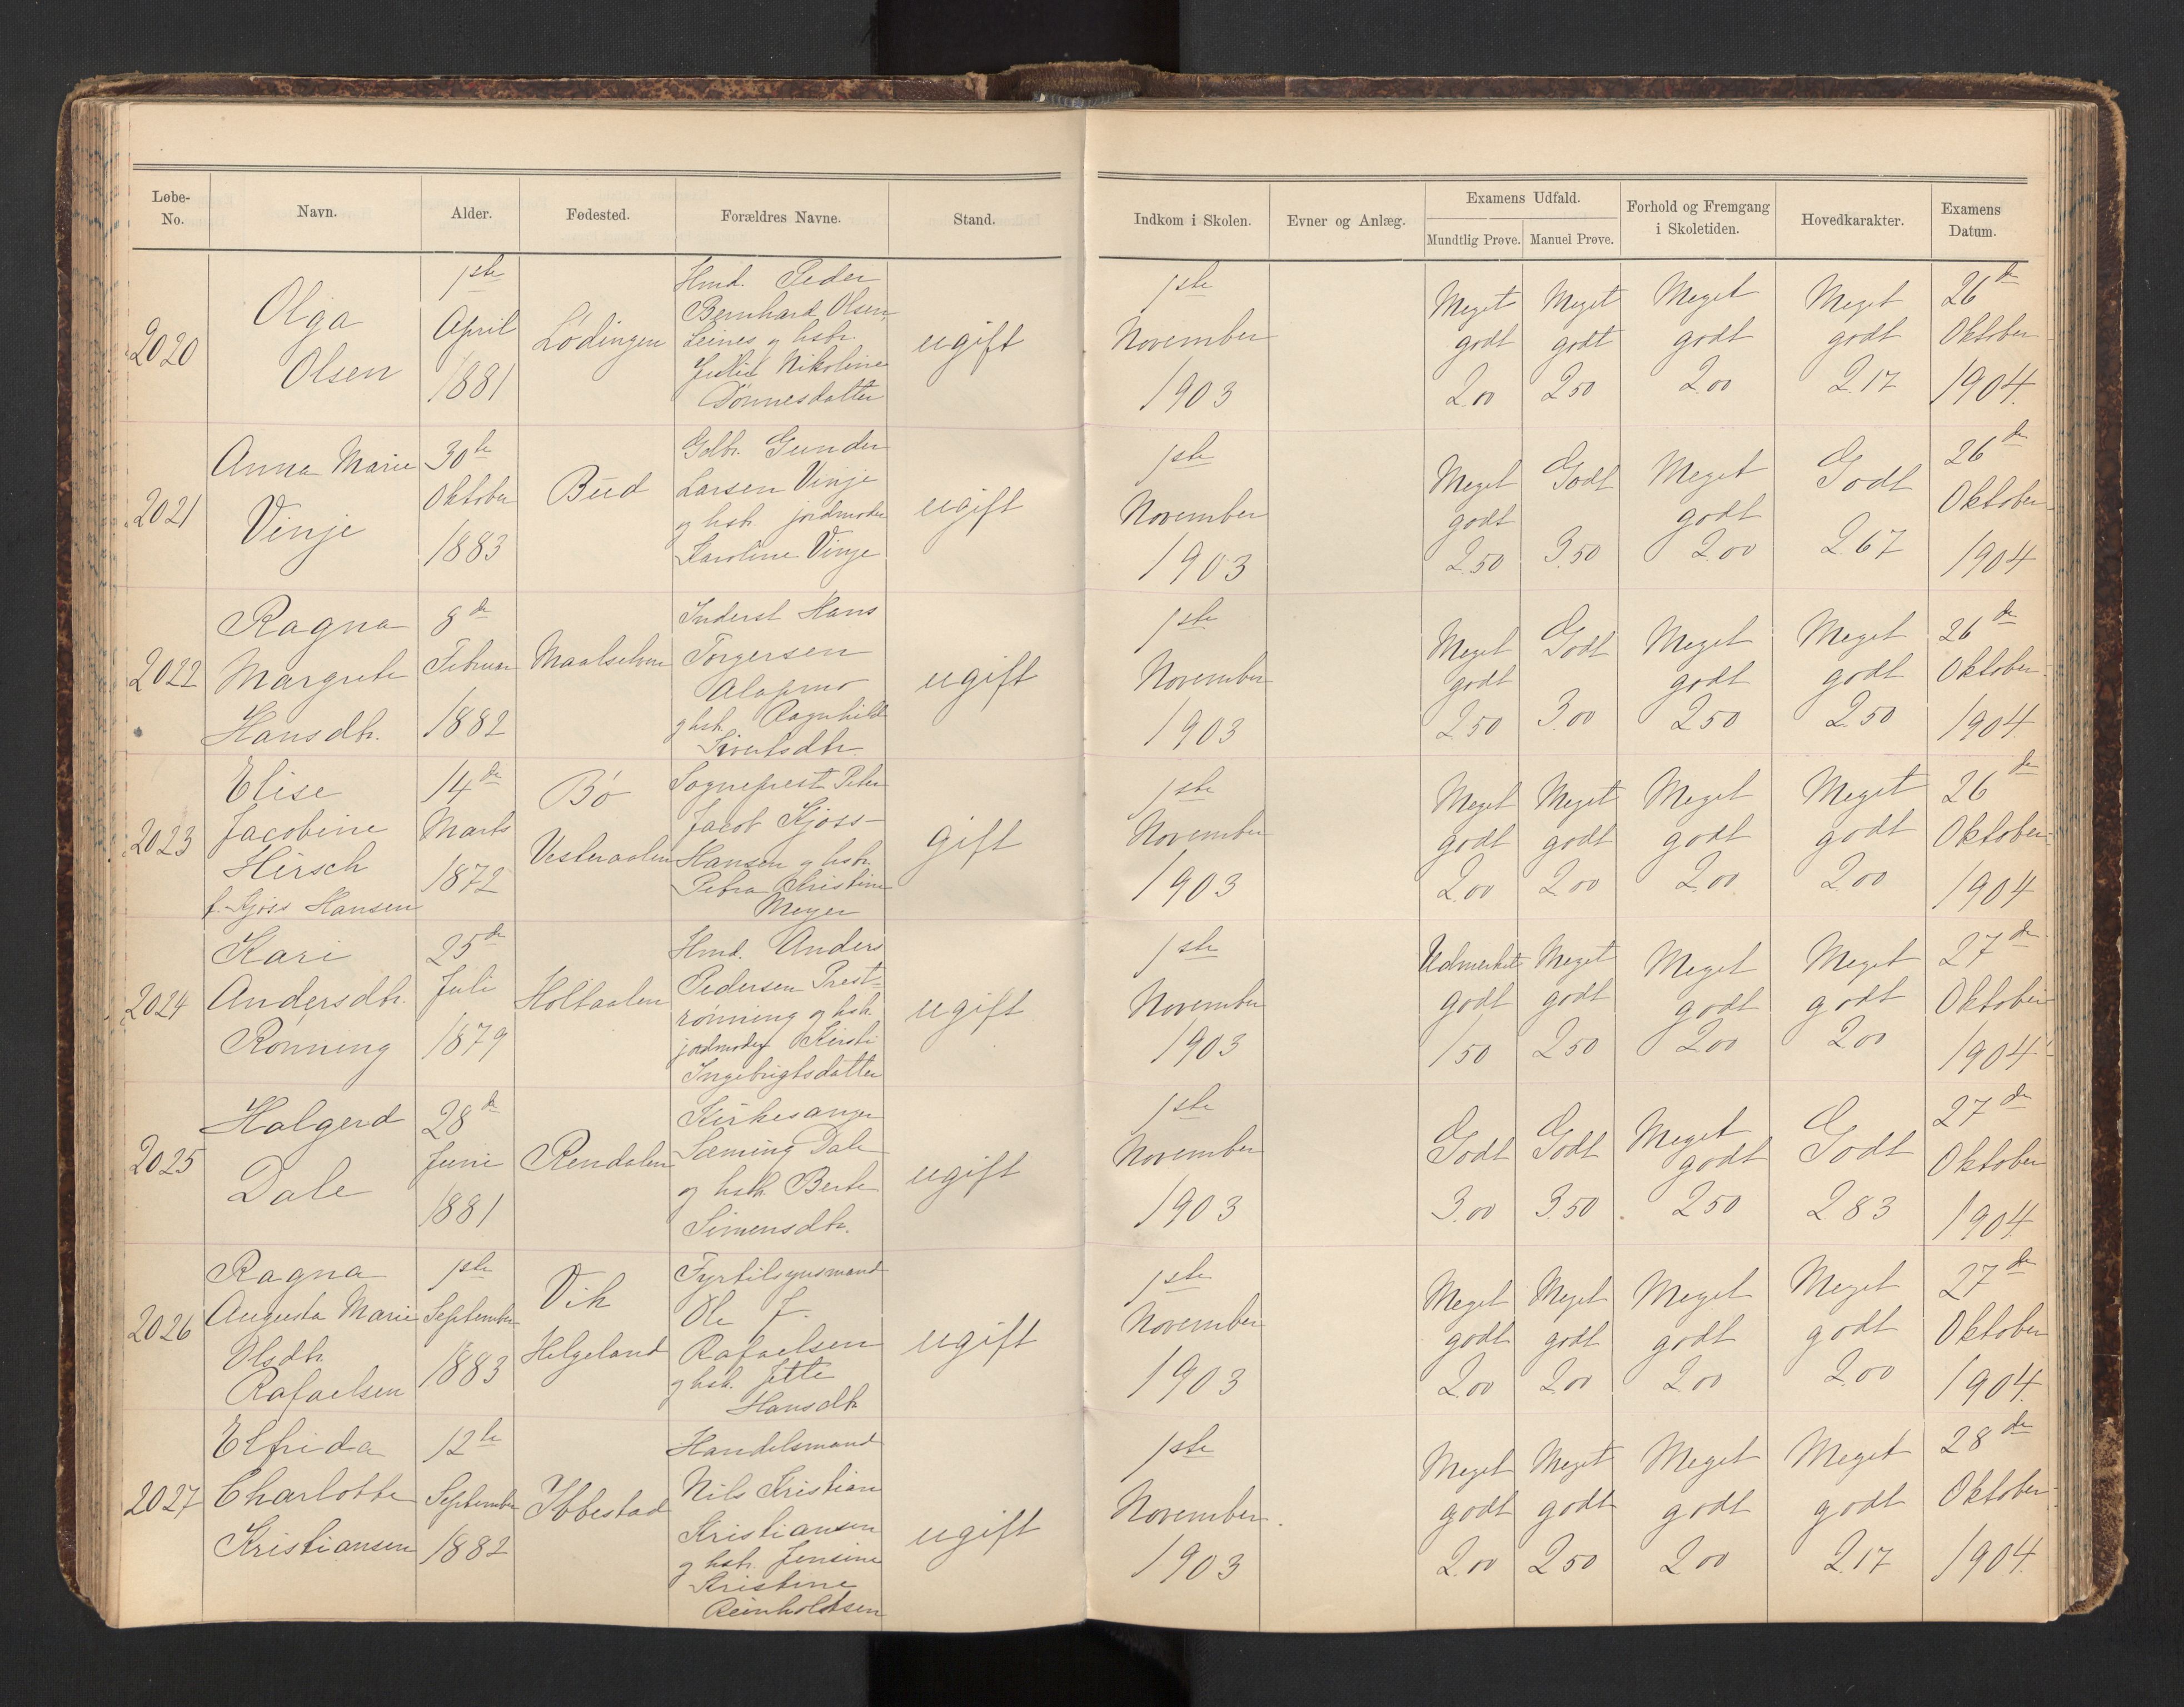 Løbe-No. Navn. Alder. Fødested. Forældres Navne. Stand. Indkom i Skolen. Evner og Anlæg. Examens Udfald. Mundtlig Prøve. Manuel Prøve. Forhold og Fremgang i Skoletiden. Hovedkarakter. Examens Datum.
2020
Olga
Olsen
1ste
April
1881
Lødingen
Hmd. Peder
Bernhard Olsen
Leines og hstr.
Nikoline
Tønnesdatter
ugift
1ste
November
1903
Meget
godt
2.00
Meget
godt
2.50
Meget
godt
2.00
Meget
godt
2.17
26de
Oktober
1904.
2021
Anna Marie
Vinje
30te
Oktober
1883
Bud
Gdbr. Gunder
Larsen Vinje
og hstr. jordmoder
Karoline Vinje
ugift
1ste
November
1903
Meget
godt
2.50
Godt
3.50
Meget
godt
2.00
Godt
2.67
26de
Oktober
1904
2022
Ragna
Margrete
Hansdtr.
8de
Februar
1882
Maalselven
Inderst Hans
Torgersen
Alapmo
og hstr. Ragnhild
Sivertsdtr.
ugift
1ste
November
1903
Meget
godt
2.50
Godt
3.00
Meget
godt
2.50
Meget
godt
2.50
26de
Oktober
1904.
2023
Elise
Jacobine
Hirsch
f. Kjøss Hansen
14de
Marts
1872
Bø
Vesteraalen
Sogneprest Peter
Jacob Kjøss-
Hansen og hstr.
Petra Kristine
Meyer
gift
1ste
November
1903
Meget
godt
2.00
Meget
godt
2.00
Meget
godt
2.00
Meget
godt
2.00
26de
Oktober
1904
2024
Kari
Andersdtr.
Rønning
25de
Juli
1879
Holtaalen
Hmd. Anders
Pedersen Prest-
rønning og hstr.
jordmoder Kirsti
Ingebrigtsdatter
ugift
1ste
November
1903
Udmerket
godt
1.50
Meget
godt
2.50
Meget
godt
2.00
Meget
godt
2.00
27de
Oktober
1904
2025
Halgerd
Dale
28de
Juni
1881
Rendalen
Kirkesanger
Sæming Dale
og hstr. Berte
Simensdtr.
ugift
1ste
November
1903
Godt
3.00
Godt
3.50
Meget
godt
2.50
Godt
2.83
27de
Oktober
1904.
2026
Ragna
Augusta Marie
Olsdtr.
Rafaelsen
1ste
September
1883
Vik
Helgeland
Fyrtilsynsmand
Ole J.
Rafaelsen
og hstr. Jette
Hansdtr
ugift
1ste
November
1903
Meget
godt
2.00
Meget
godt
2.00
Meget
godt
2.00
Meget
godt
2.00
27de
Oktober
1904.
2027
Elfrida
Charlotte
Kristiansen
12te
September
1882
Ibbestad
Handelsmand
Nils Kristian
Kristiansen
og hstr. Jensine
Kristine
Reinholdtsen
ugift
1ste
November.
1903
Meget
godt
2.00
Meget
godt
2.50
Meget
godt
2.00
Meget
godt
2.17
28de
Oktober
1904.